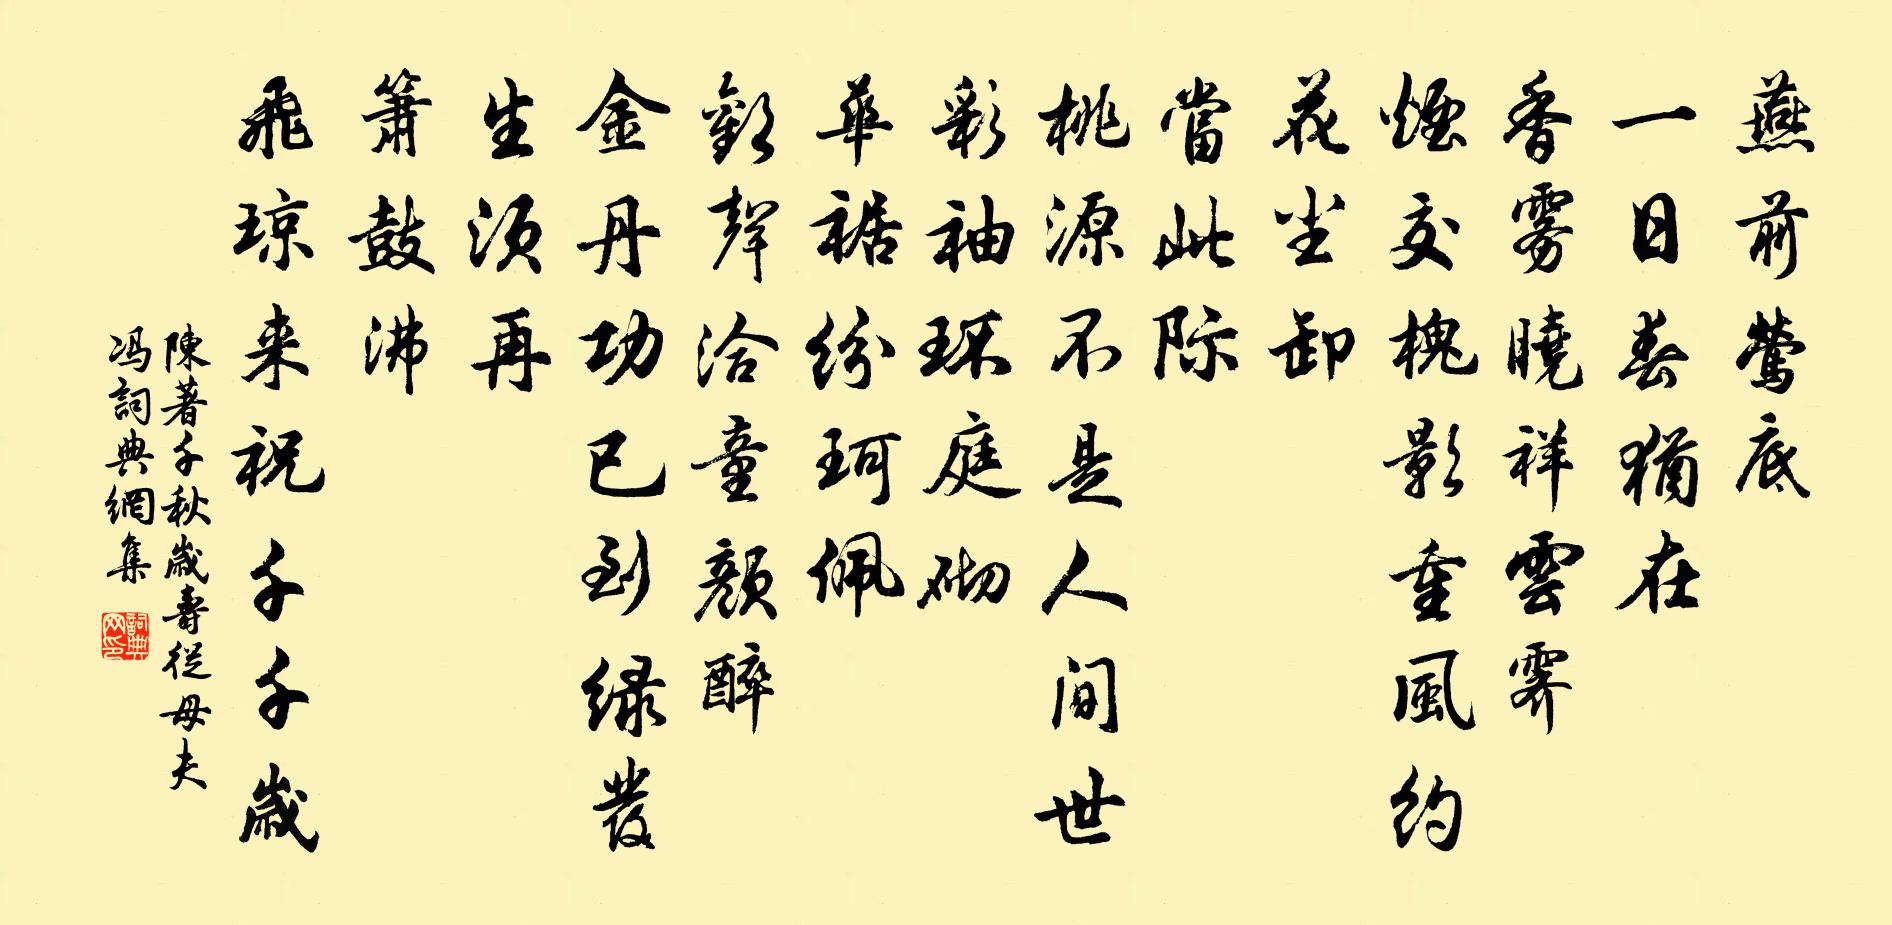 燕前莺底
一日春猶在
香雾曉祥雲霁
煙交槐影重風約
花尘卸
當此际
桃源不是人间世
彩袖环庭砌
華裾纷珂佩
歡聲洽童颜醉
金丹功已到绿發
生须再
箫鼓沸
飛琼来祝千千歲
陳著千秋歲壽從母夫
冯詞典網集
詞典网印